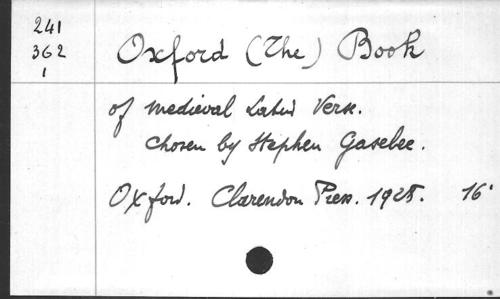 241
362
1
Oxford (The) Book
of medieval Latin Verse.
chosen by Stephen Gaselee.
Oxford. Clarendon Press. 1928. 16°